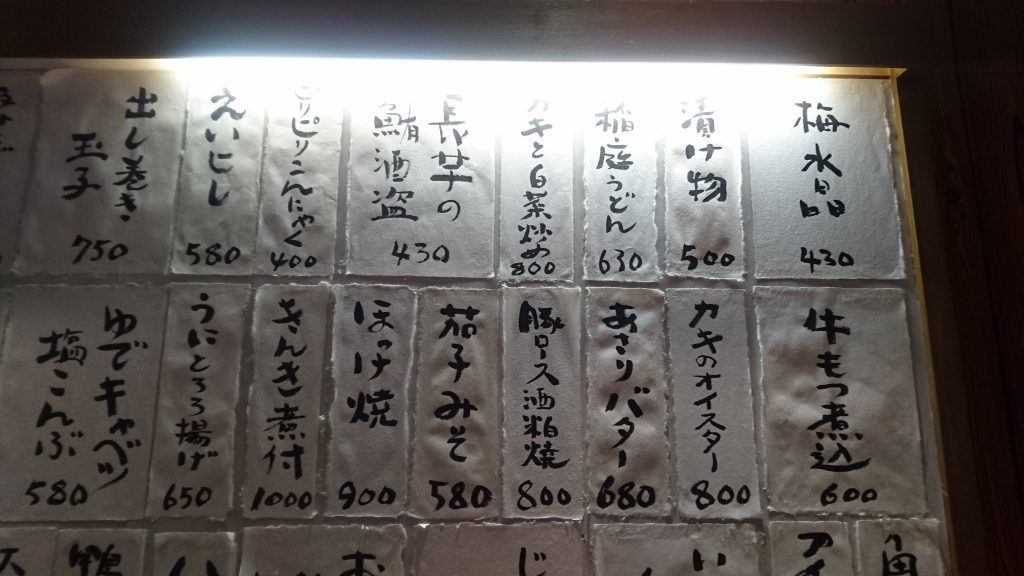 梅水晶
430
漬け物
500
稲庭うどん
630
カキと白菜炒め
800
長芋の
鮪酒盗
430
ピリピリこんにゃく
400
えいひれ
580
出し巻き
玉子
750
牛もつ煮込
600
カキのオイスター
800
あさりバター
680
豚ロース酒粕焼
800
茄子みそ
580
ほっけ焼
900
きんき煮付
1000
うにとろろ揚げ
650
ゆでキャベツ
塩こんぶ
580